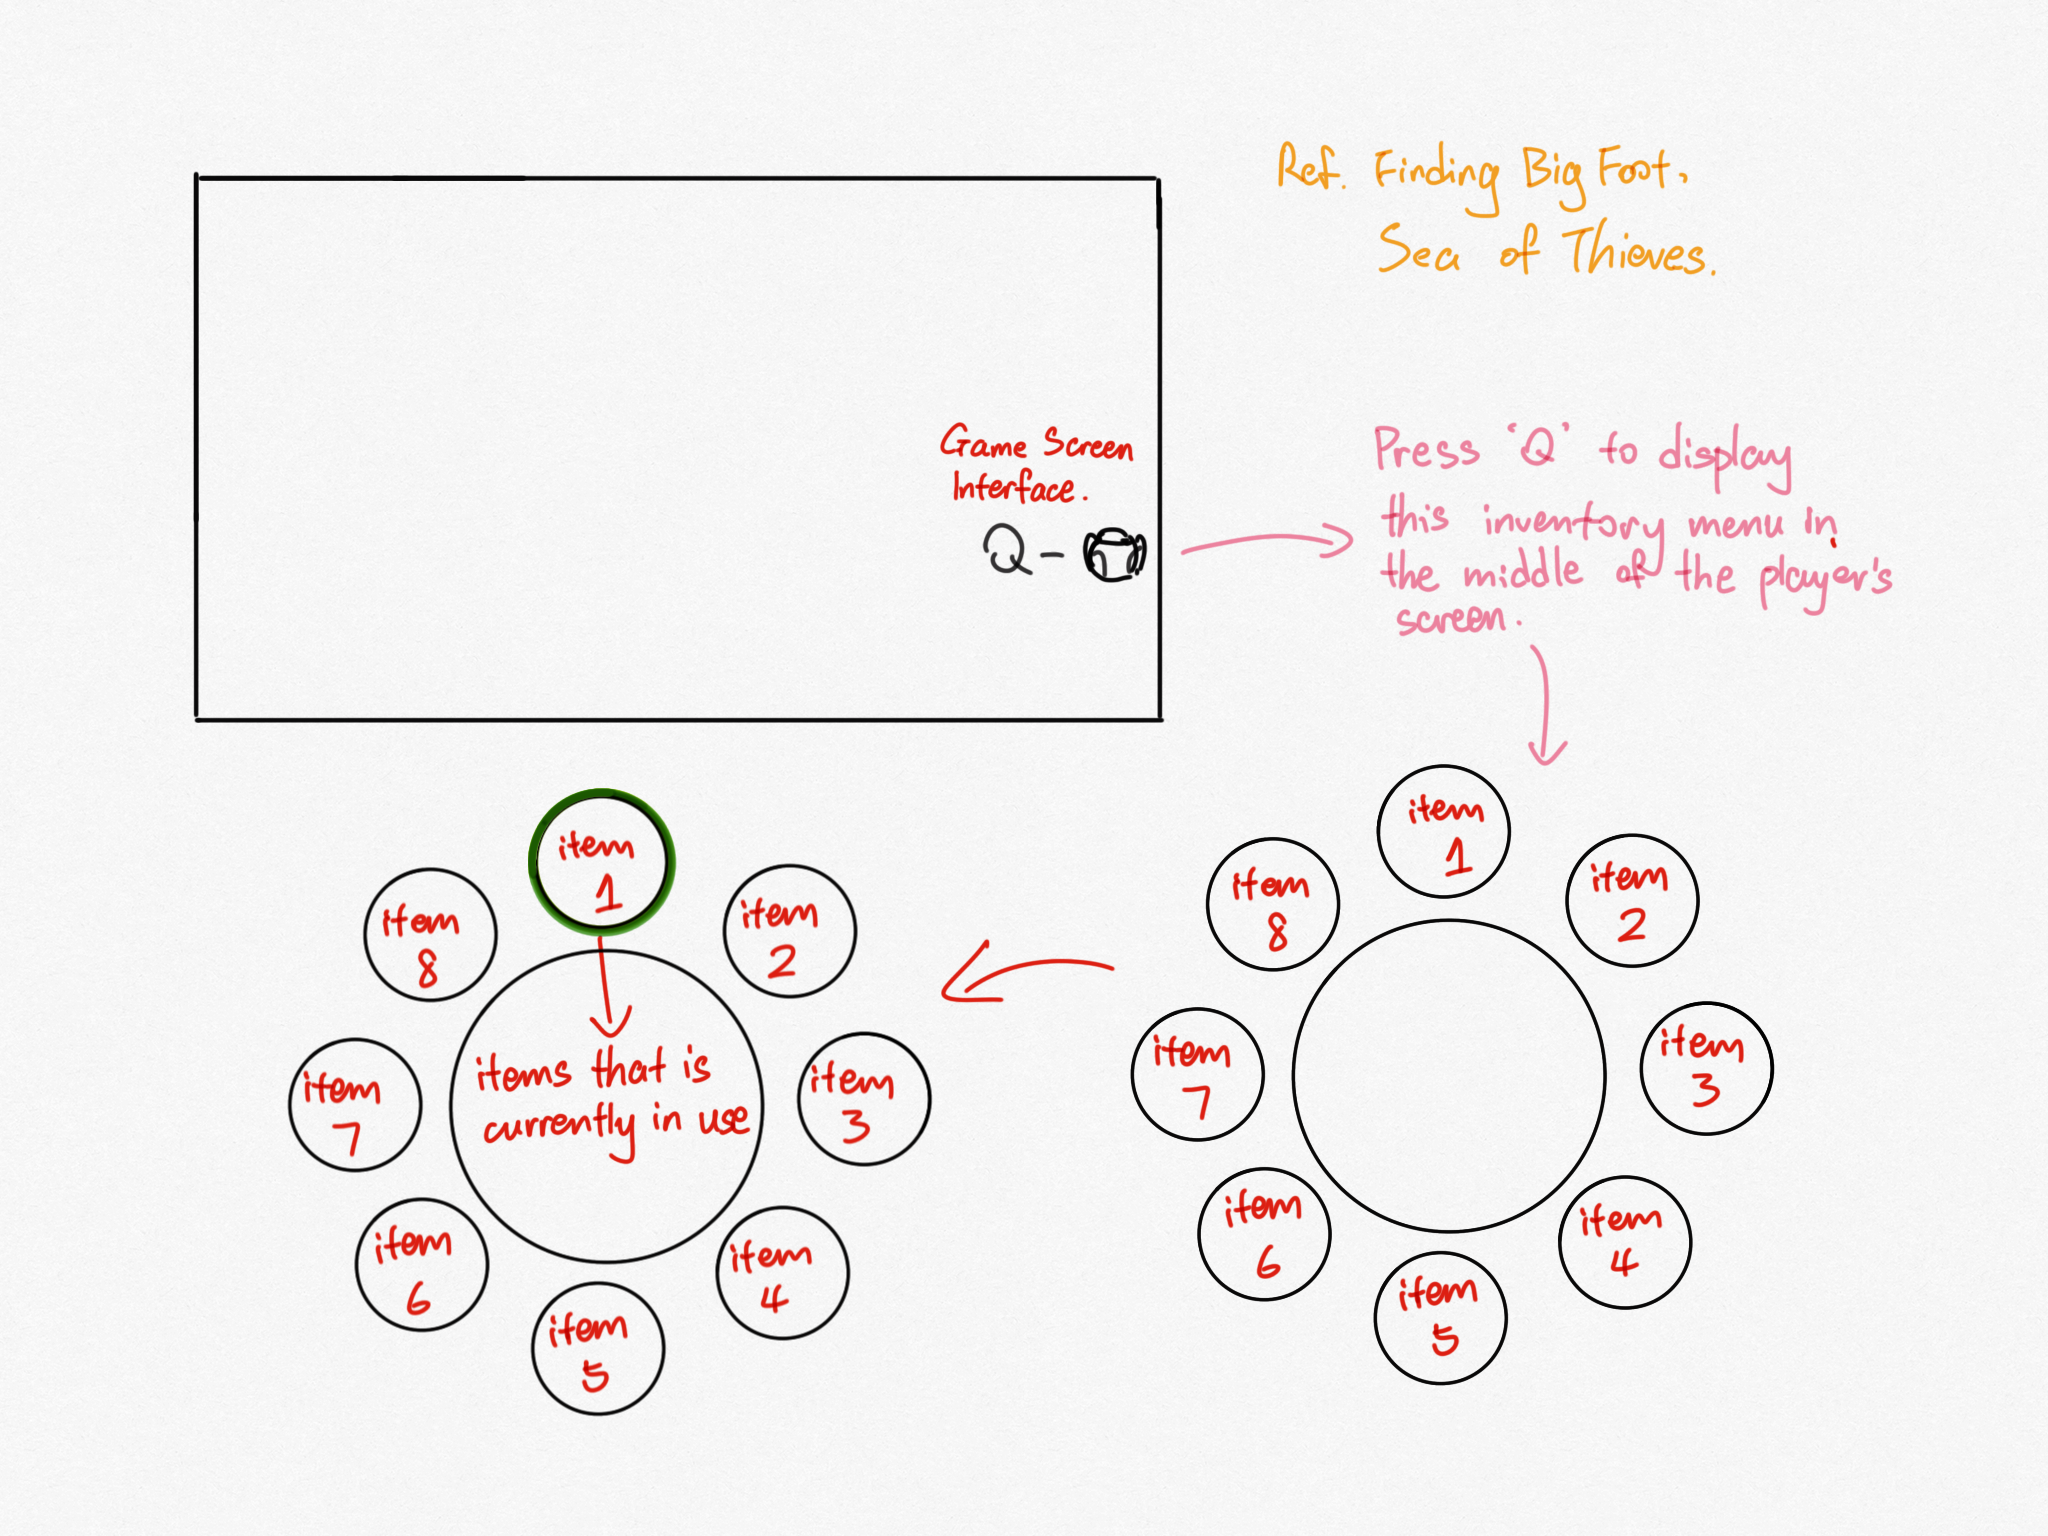 Ref. Finding Big Foot,
Sea of Thieves.
Game Screen
Interface.
Q -
Press 'Q' to display
this inventory menu in
the middle of the player's
screen.
item
1
item
2
item
3
item
4
item
5
item
6
item
7
item
8
item
1
item
2
item
3
item
4
item
5
item
6
item
7
item
8
items that is
currently in use